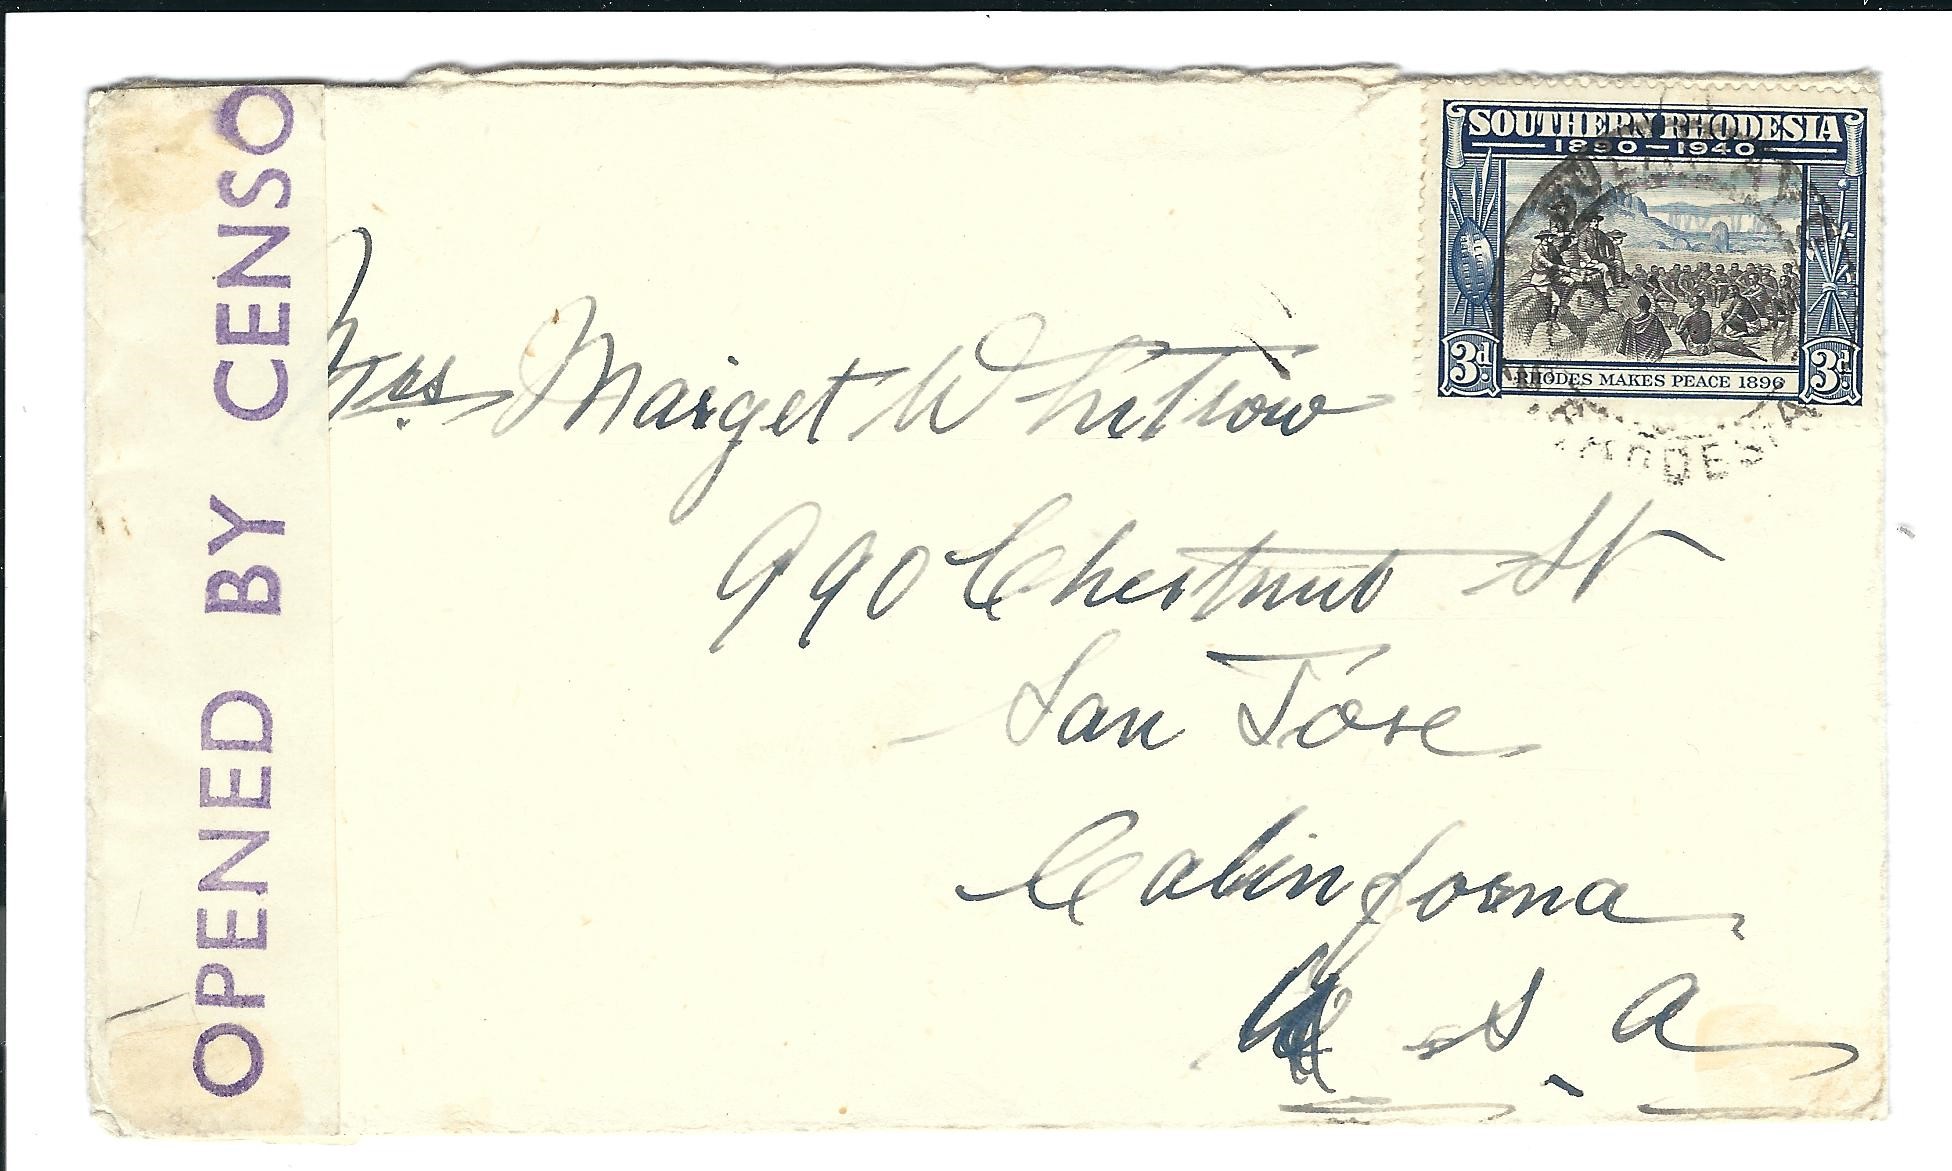 OPENED BY CENSO
SOUTHERN RHODESIA
1890 — 1940
3d. 3d.
RHODES MAKES PEACE 1896
RHODESIA
Mrs. Marget Whitrow
990 Chestnut St
San Jose
Calinforna
U. S. A